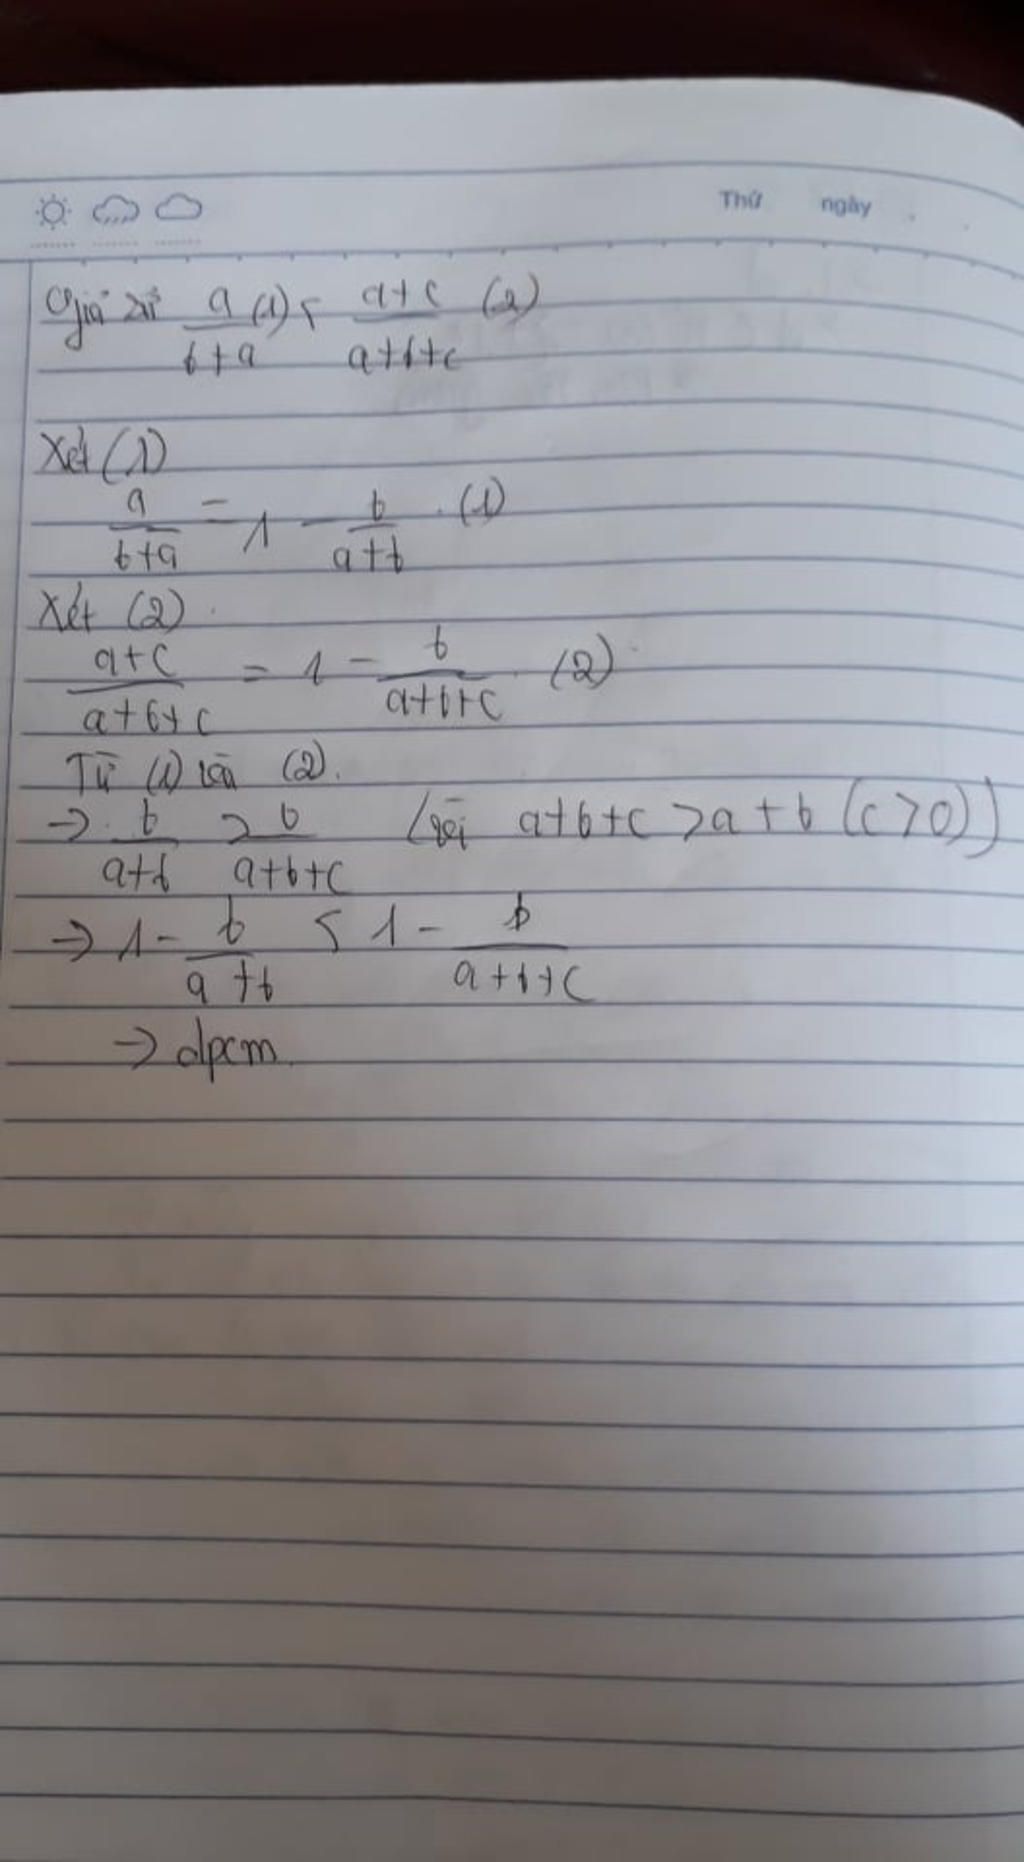 Thứ ngày
Giả sử a/(b+a) (1) < (a+c)/(a+b+c) (2)
Xét (1)
a/(b+a) = 1 - b/(a+b) (1)
Xét (2)
(a+c)/(a+b+c) = 1 - b/(a+b+c) (2)
Từ (1) và (2).
→ b/(a+b) > b/(a+b+c) (vì a+b+c > a+b (c>0))
→ 1 - b/(a+b) < 1 - b/(a+b+c)
→ dpcm.